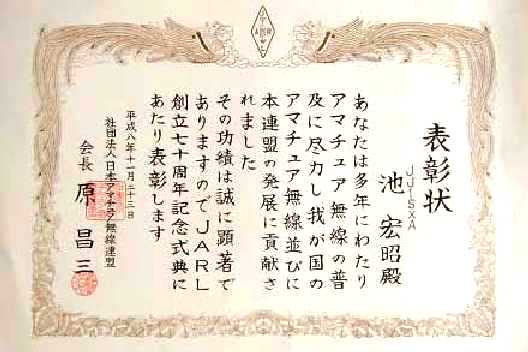 表彰状
JJ1SXA
池宏昭殿
あなたは多年にわたり
アマチュア無線の普
及に尽力し我が国の
アマチュア無線並びに
本連盟の発展に貢献さ
れました
その功績は誠に顕著で
ありますのでJARL
創立七十周年記念式典に
あたり表彰します
平成八年十一月二十二日
社団法人日本アマチュア無線連盟
会長 原昌三